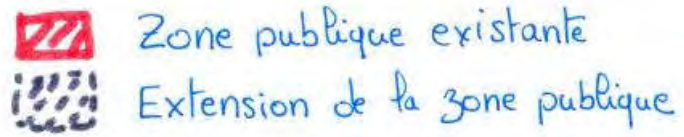 Zone publique existante
Extension de la zone publique